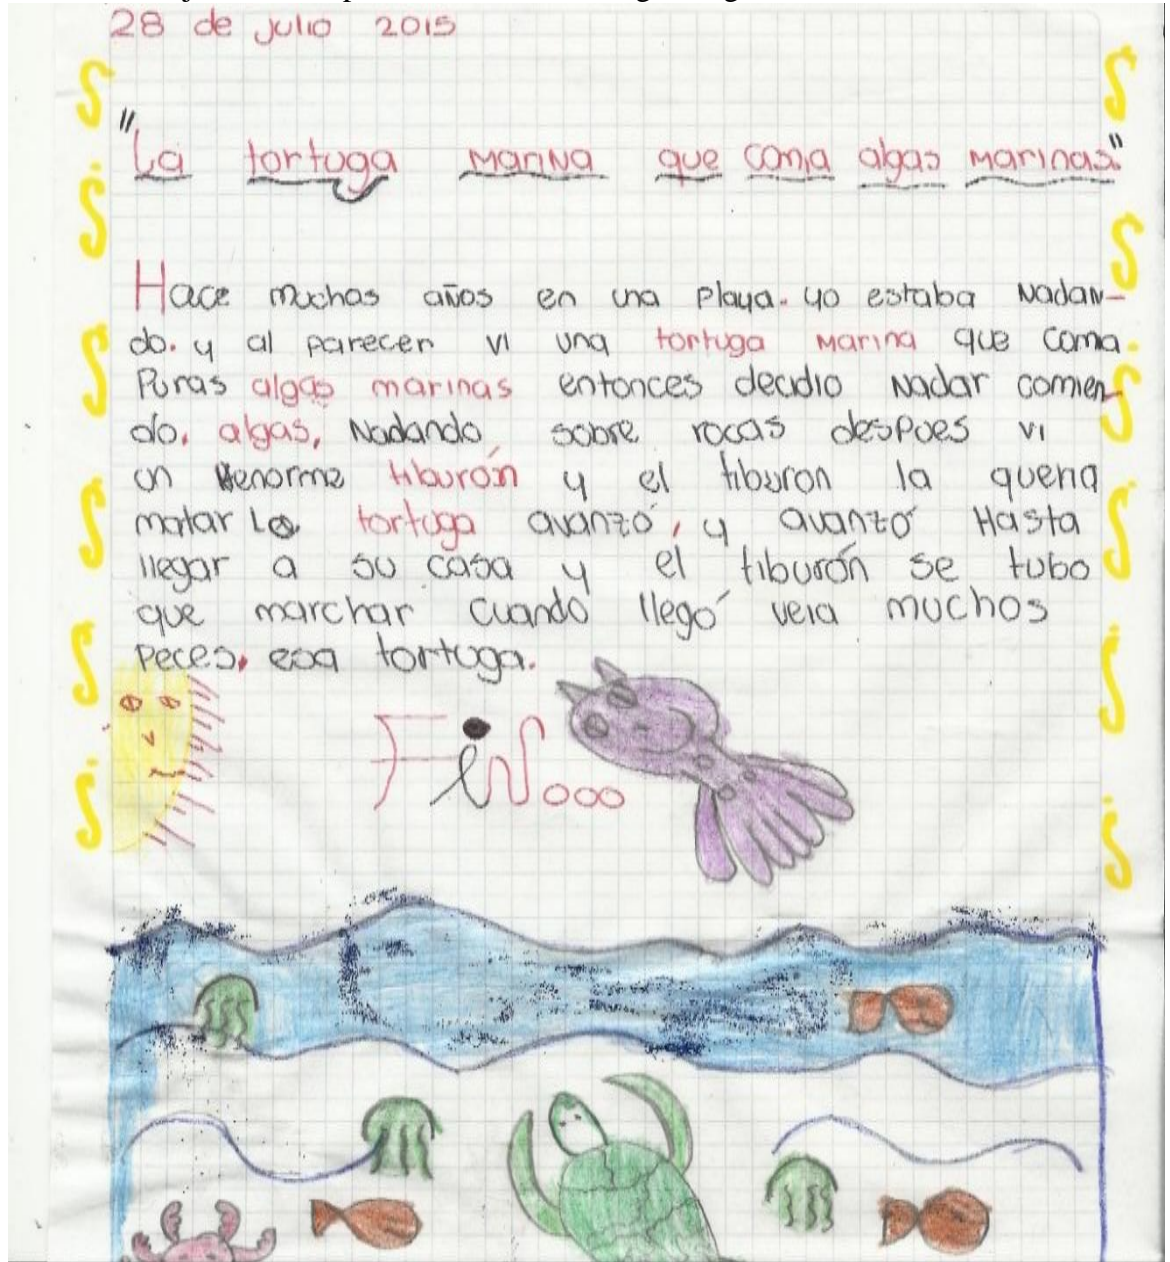 28 de julio 2015
"La tortuga Marina que comia algas marinas."
Hace muchos años en una playa. yo estaba Nadan-
do. y al parecer vi una tortuga Marina que comia.
Puras algas marinas entonces decidio Nadar comien-
do. algas, Nadando sobre rocas despues vi
un enorme tiburón y el tiburon la queria
matar La tortuga avanzó, y avanzó Hasta
llegar a su casa y el tiburón se tubo
que marchar cuando llegó veia muchos
Peces. esa tortuga.
FiN...